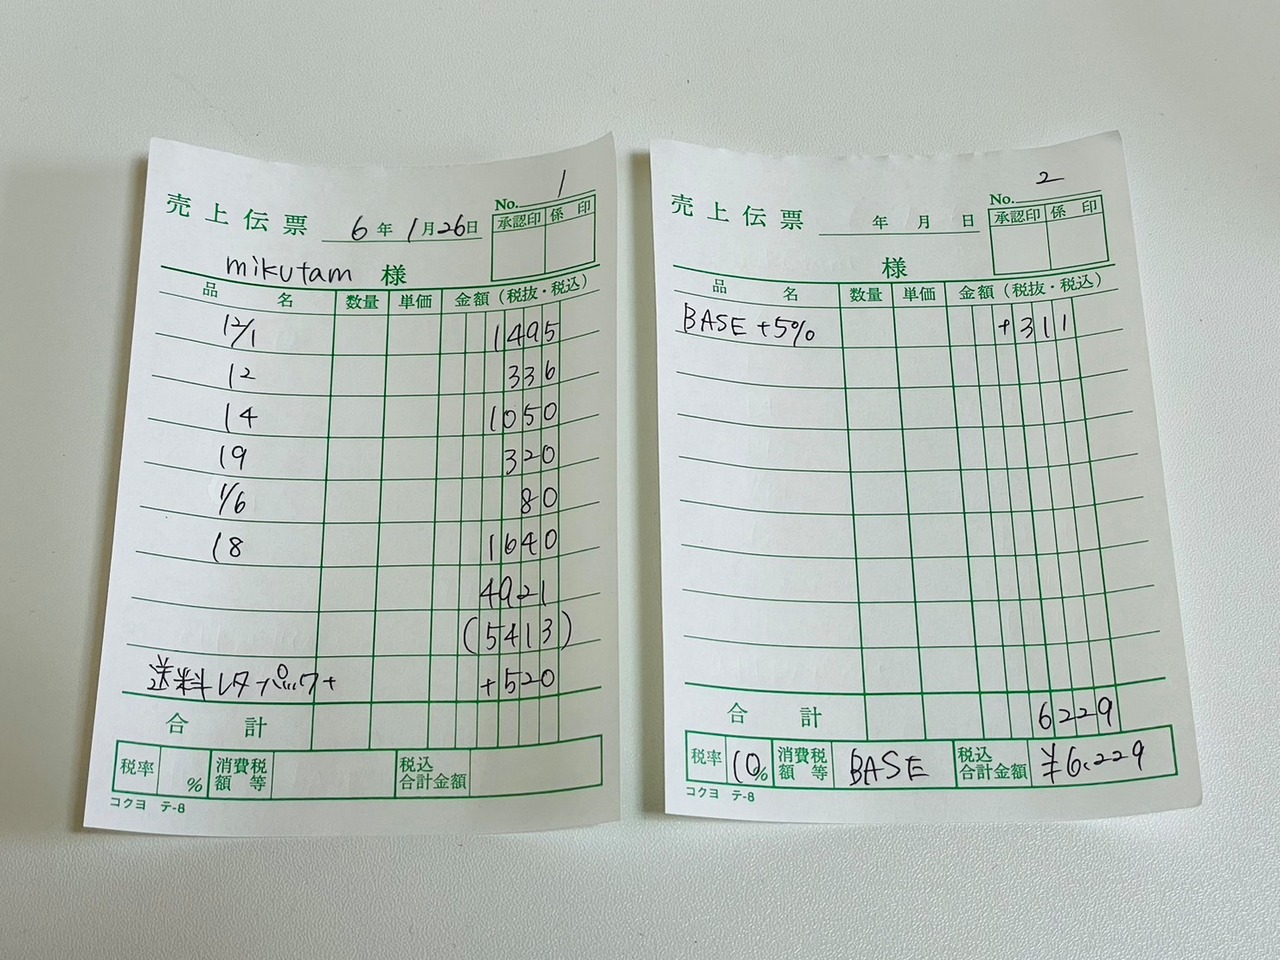 No. 1
売上伝票 6年1月26日
承認印 係印
mikutam 様
品名 数量 単価 金額(税抜・税込)
12/1 1495
12 336
14 1050
19 320
1/6 80
18 1640
4921
(5413)
送料レターパック+ +520
合計
税率 % 消費税額等 税込合計金額
コクヨ テ-8
No. 2
売上伝票 年 月 日
承認印 係印
様
品名 数量 単価 金額(税抜・税込)
BASE +5% +311
合計 6229
税率 10% 消費税額等 BASE 税込合計金額 ¥6,229
コクヨ テ-8